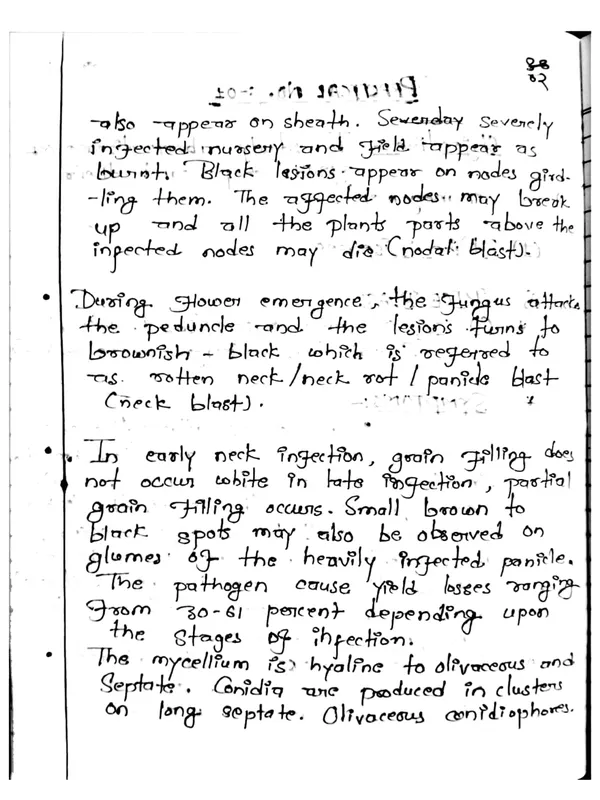 02
also appear on sheath. Severely
infected nursery and field appear as
burnt. Black lesions appear on nodes gird-
-ling them. The affected nodes may break
up and all the plants parts above the
infected nodes may die (nodal blast).
• During flower emergence, the fungus attacks
the peduncle and the lesions turns to
brownish - black which is referred to
as rotten neck/neck rot/panicle blast
(neck blast).
• In early neck infection, grain filling does
not occur white in late infection, partial
grain filling occurs. Small brown to
black spots may also be observed on
glumes of the heavily infected panicle.
The pathogen cause yield losses ranging
from 30-61 percent depending upon
the stages of infection.
• The mycellium is hyaline to olivaceous and
Septate. Conidia are produced in clusters
on long septate. Olivaceous conidiophores.